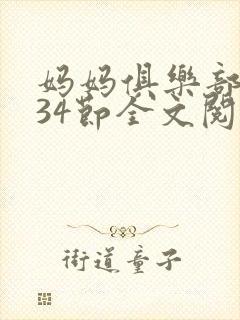 妈妈俱樂部
34節全文閱
街道童子